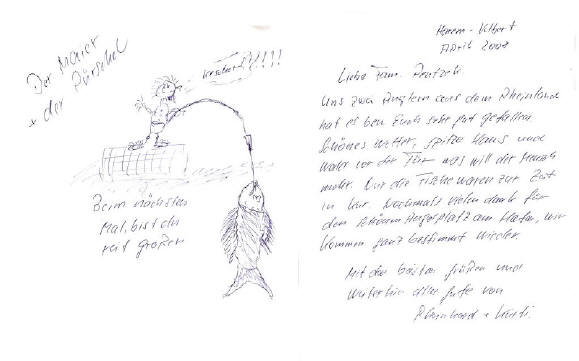 Der
der
Beim nächsten
Mal, bist du
reif großer
April 2008
Liebe Fam.
Uns zwei Anglern aus dem Rheinland
hat es bei Euch sehr gut gefallen
Schönes Wetter, spitze Haus und
vor der Tür was will der Mensch
mehr. Nur die Fische waren zur Zeit
in Kur. Nochmals vielen dank für
den schönen am Hafen, wir
kommen ganz bestimmt wieder.
Mit den besten Grüßen und
weiterhin alles gute von